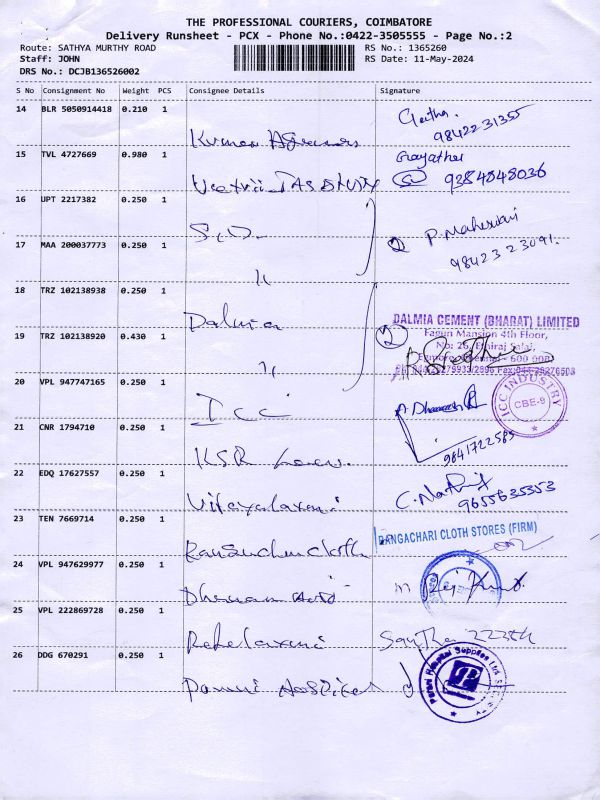 THE PROFESSIONAL COURIERS, COIMBATORE
Delivery Runsheet - PCX - Phone No.:0422-3505555 - Page No.:2
Route: SATHYA MURTHY ROAD RS No.: 1365260
Staff: JOHN RS Date: 11-May-2024
DRS No.: DCJB136526002
S No Consignment No Weight PCS Consignee Details Signature
14 BLR 5050914418 0.210 1
Geetha. 9842231355
Kumar
15 TVL 4727669 0.980 1
Gayathri 9384848036
16 UPT 2217382 0.250 1
S.D.
P. Maheswari
17 MAA 200037773 0.250 1
② 98423 23091.
"
18 TRZ 102138938 0.250 1
Dalmia
DALMIA CEMENT (BHARAT) LIMITED
Fagun Mansion 4th Floor,
19 TRZ 102138920 0.430 1
② No: 26, Ethiraj Salai,
Egmore, Chennai - 600 008
"
20 VPL 947747165 0.250 1
ICC INDUSTRY
CBE-9
Icc
21 CNR 1794710 0.250 1
9841722565
KSR
22 EDQ 17627557 0.250 1
9655635353
Vijayalaxmi
23 TEN 7669714 0.250 1
RANGACHARI CLOTH STORES (FIRM)
Cloth
24 VPL 947629977 0.250 1
25 VPL 222869728 0.250 1
26 DDG 670291 0.250 1
Hospital